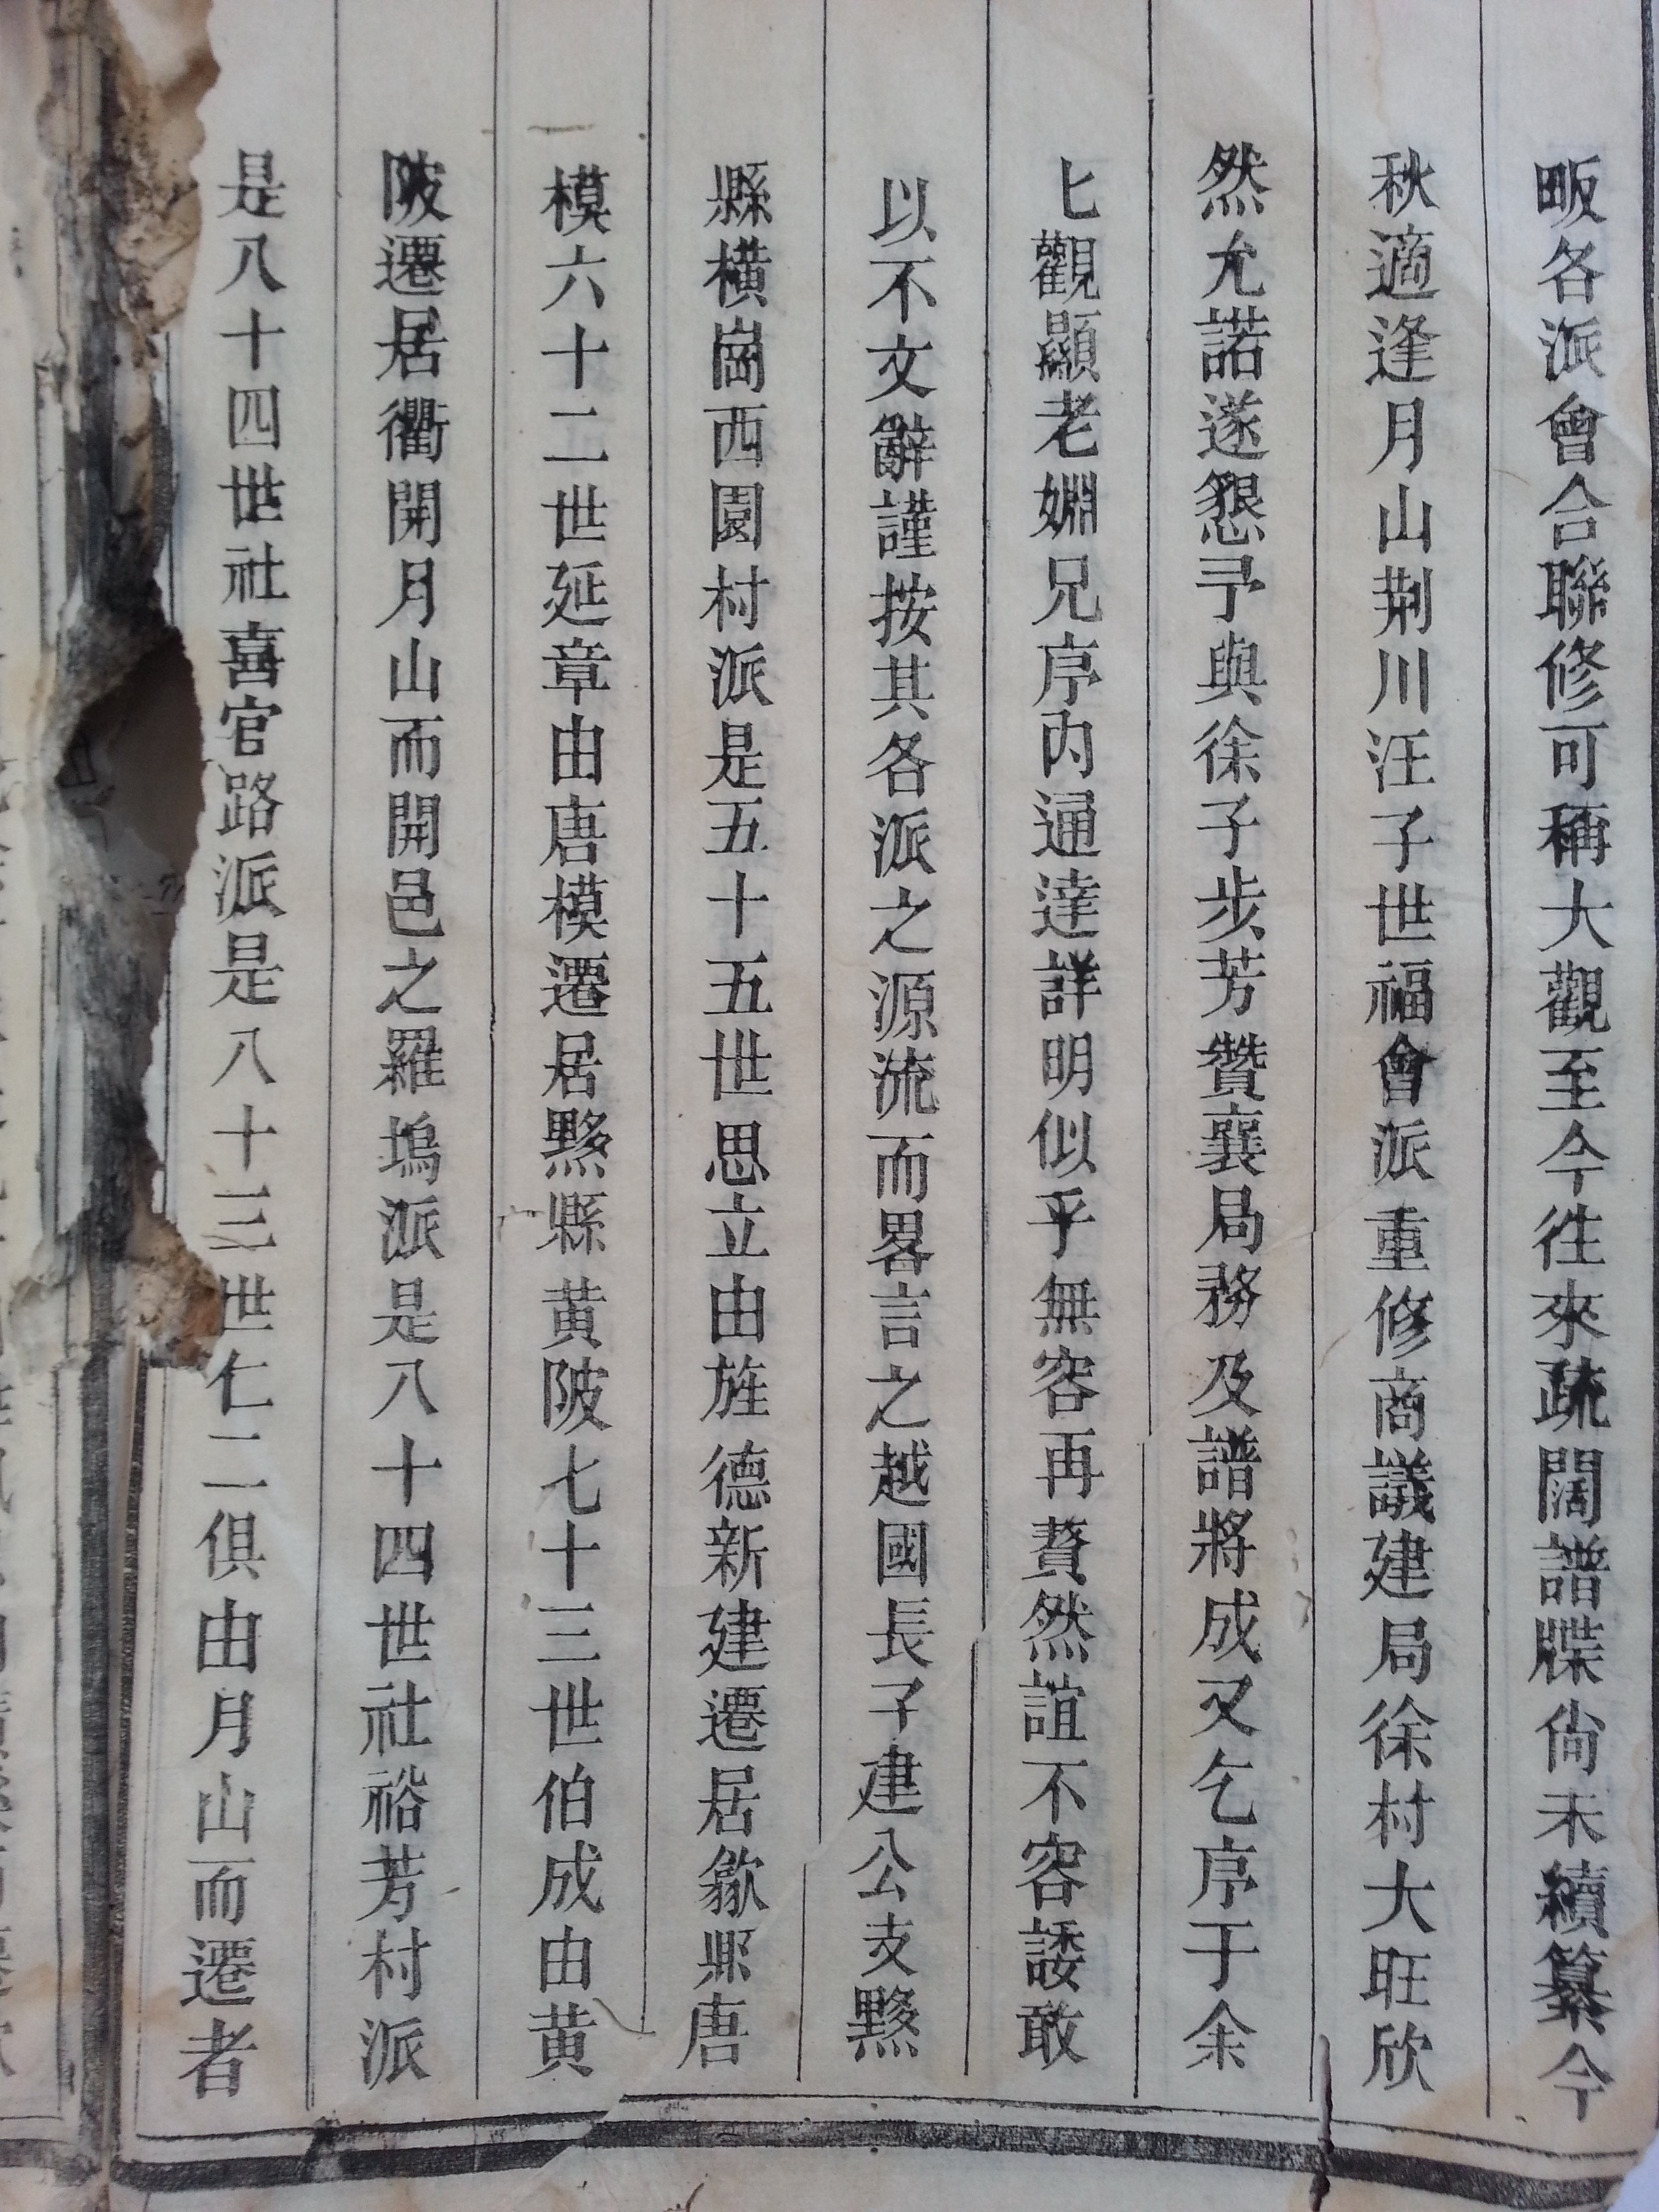 畈各派會合聯修可稱大觀至今徃來疏闊譜牒尙未續纂今
秋適逢月山荆川汪子世福會派重修商議建局徐村大旺欣
然允諾遂懇予與徐子步芳贊襄局務及譜將成又乞序于余
匕觀顯老婣兄序內通達詳明似乎無容再贅然誼不容諉敢
以不文辭謹按其各派之源流而畧言之越國長子建公支黟
縣橫崗西園村派是五十五世思立由旌德新建遷居歙邑唐
模六十二世延章由唐模遷居黟縣黃陂七十三世伯成由黃
陂遷居衢開月山而開邑之羅塢派是八十四世社裕芳村派
是八十四世社喜官路派是八十三世仁二俱由月山而遷者